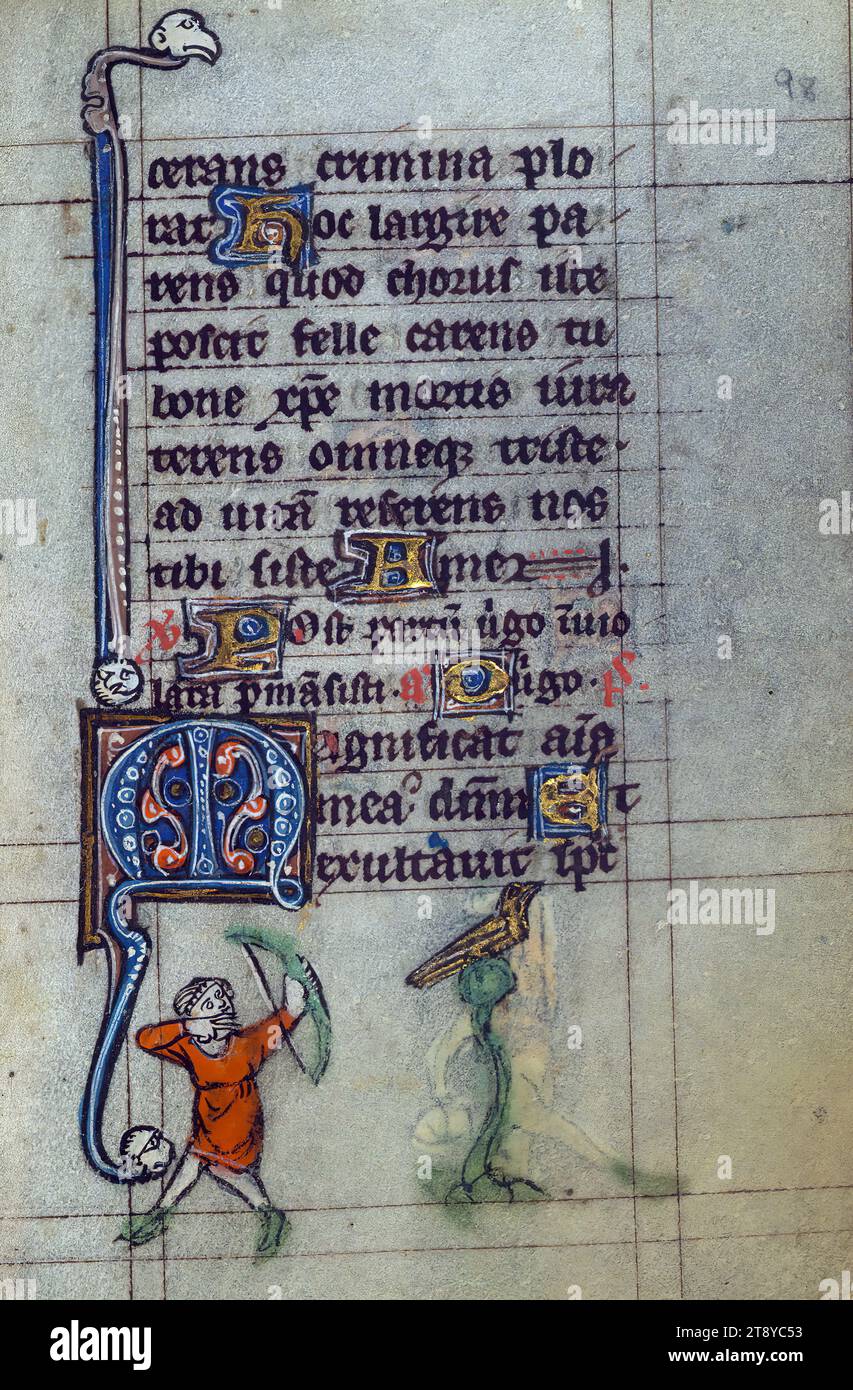 98
cerans crimina plo
rat Hoc largire pa
rens quod chorus iste
poscit felle carens tu
bone xp̄e mortis iura
terens omneqꝫ triste·
ad uitā referens nos
tibi siste Amen
Post partū ūgo īuio
lata ꝑmāsisti· a᷎ go· ps.
Magnificat aīa
mea dn̄m Et
exultauit spc
alamy
Image ID: 2T8YC53
www.alamy.com